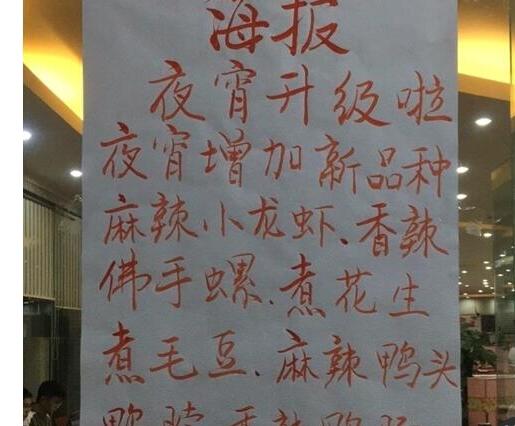 海报
夜宵升级啦
夜宵增加新品种
麻辣小龙虾、香辣
佛手螺、煮花生
煮毛豆、麻辣鸭头